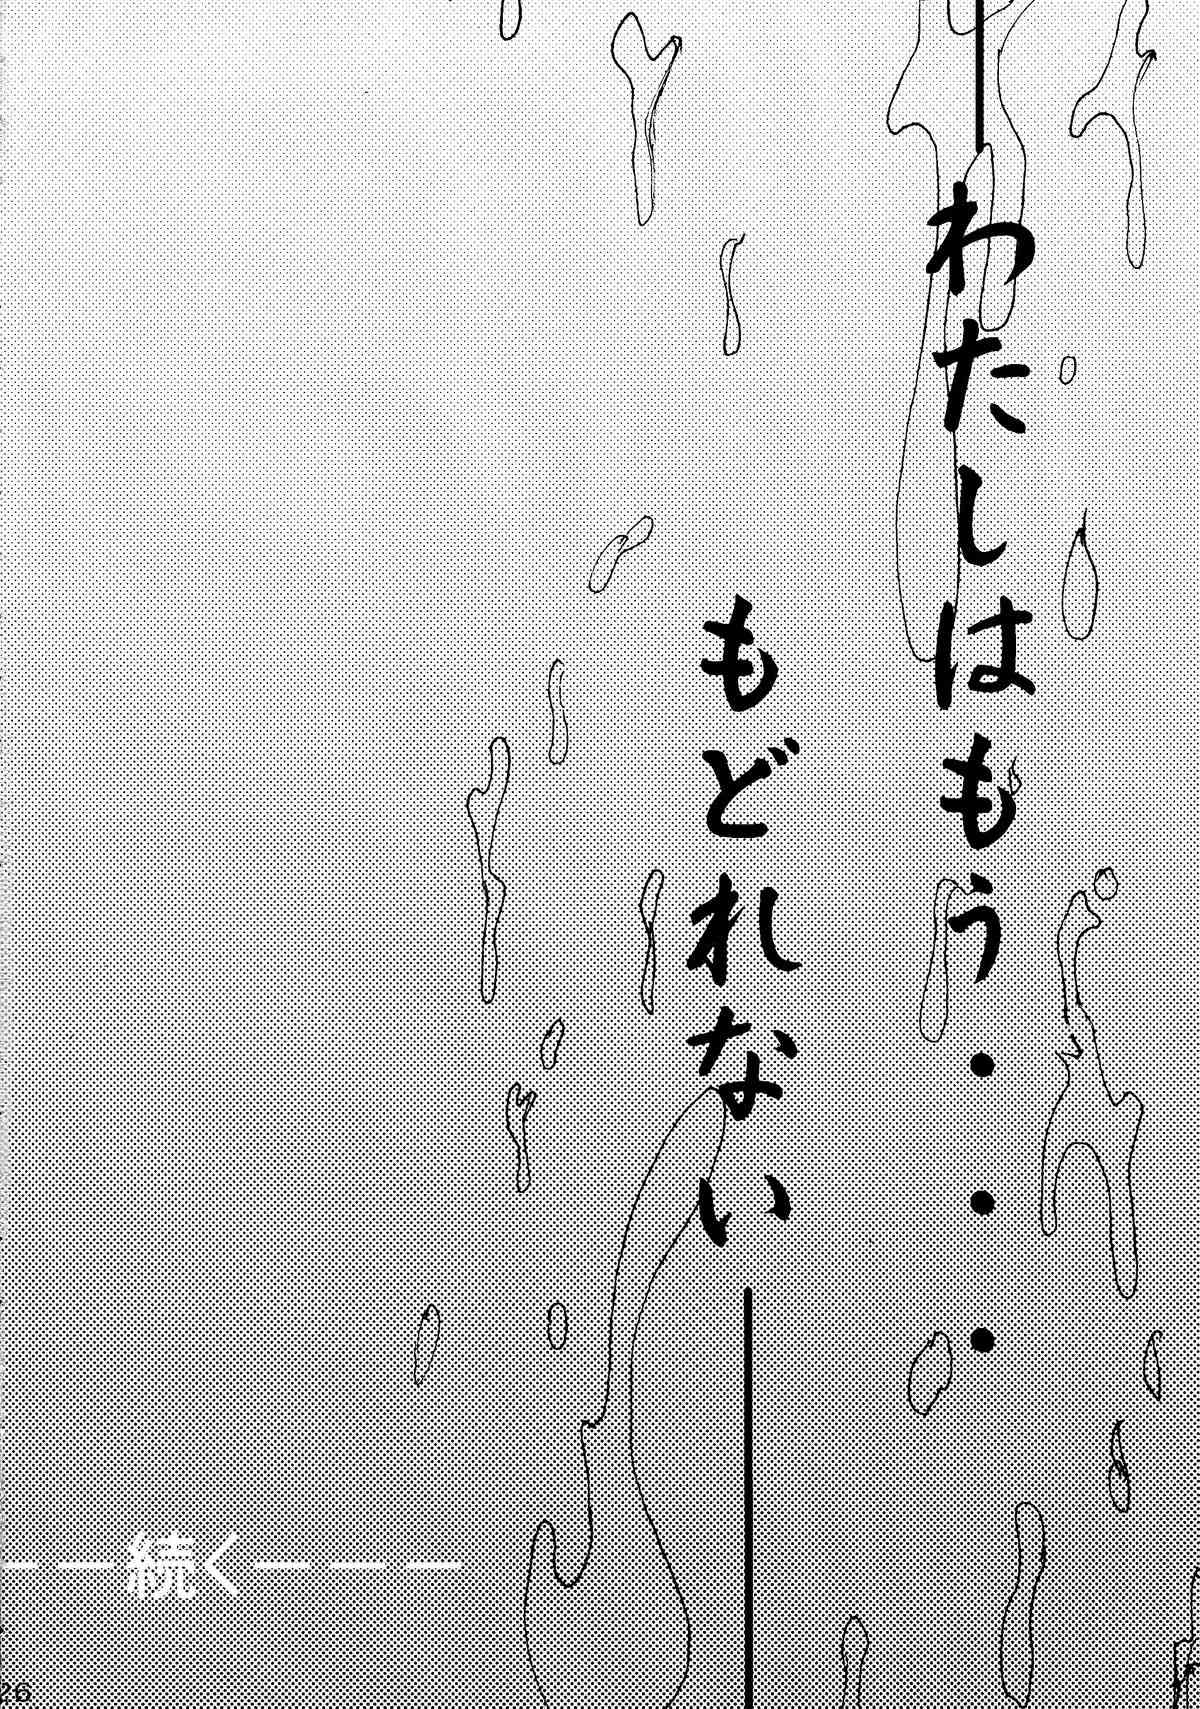 ―わたしはもう・・・
もどれない―
――続く―――
26